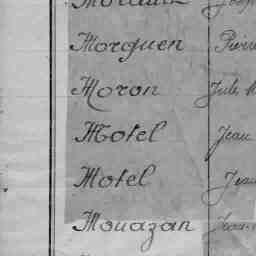 Morguen Pierre
Moron Jule M
Motel Jean
Motel Jean
Mouazan Jean-